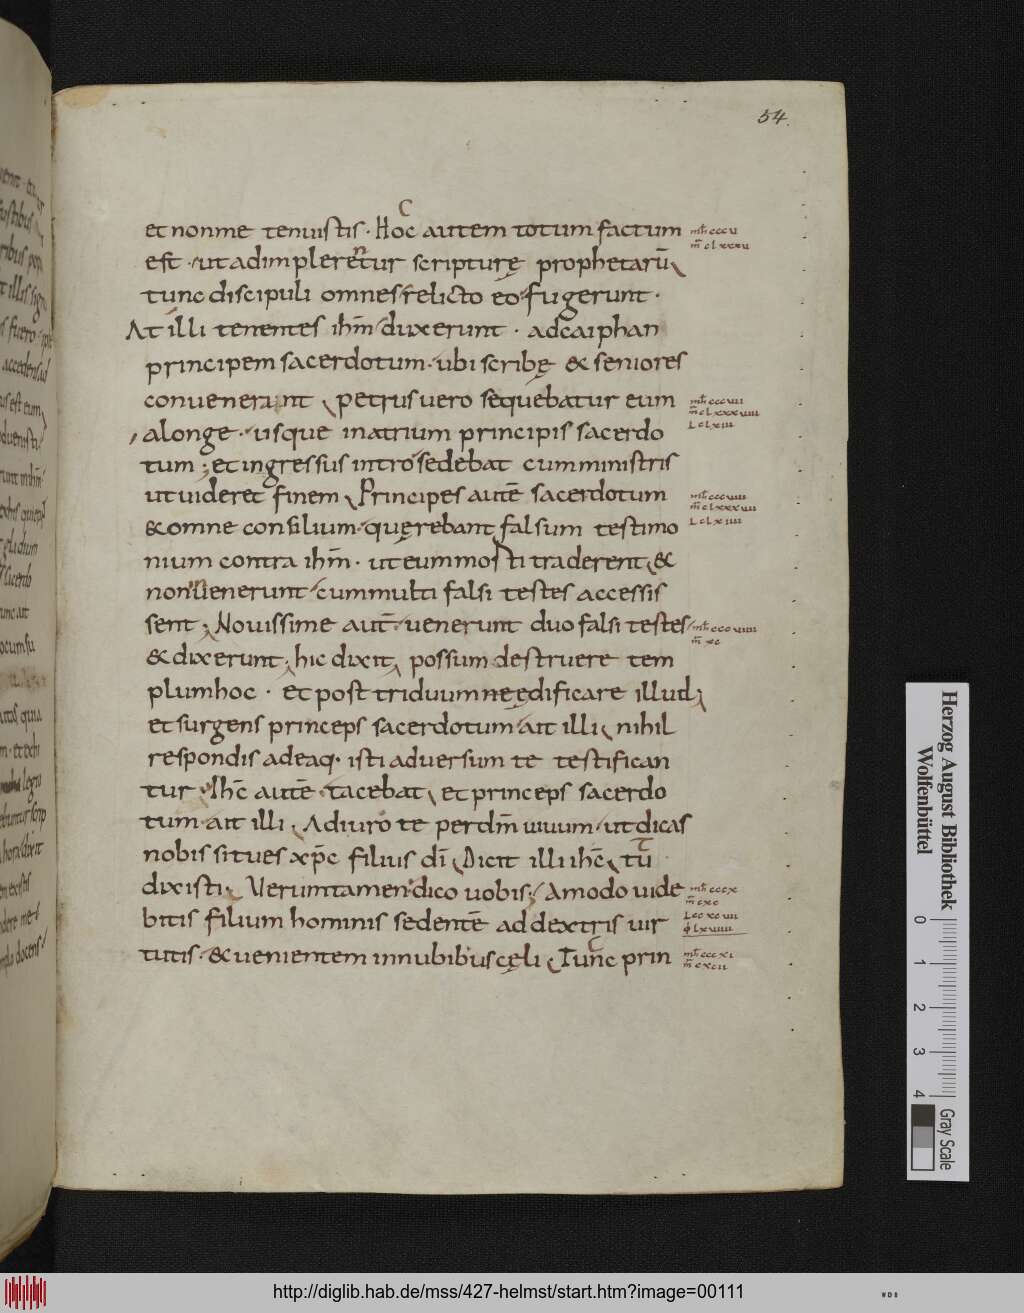 54.
et nonme tenuistis · Hoc autem totum factum
est · ut adimplerentur scripturę prophetarū
tunc discipuli omnes relicto eo fugerunt ·
At illi tenentes ihm̄ duxerunt · adcaiphan
principem sacerdotum · ubi scribę & seniores
convenerant petrus uero sequebatur eum
alonge · usque inatrium principis sacerdo
tum ; et ingressus intro sedebat cumministris
ut uideret finem Principes autē sacerdotum
& omne consilium · quęrebant falsum testimo
nium contra ihm̄ · ut eum morti traderent &
non uenerunt cummulti falsi testes accessis
sent ; Nouissime aut̄ · uenerunt duo falsi testes
& dixerunt · hic dixit possum destruere tem
plumhoc · et post triduum reędificare illud
et surgens princeps sacerdotum ait illi nihil
respondis adeaq· isti adversum te testifican
tur · Ihc̄ autē · tacebat et princeps sacerdo
tum · ait illi Adiuro te per dm̄ uiuum · ut dicas
nobis si tu es xp̄c filius dī Dicit illi ihc̄ tū
dixisti · Veruntamen dico uobis ; Amodo uide
bitis filium hominis sedentē ad dextris uir
tutis · & uenientem innubibus cęli Tunc prin
Herzog August Bibliothek
Wolfenbüttel
0 1 2 3 4
Gray Scale
http://diglib.hab.de/mss/427-helmst/start.htm?image=00111